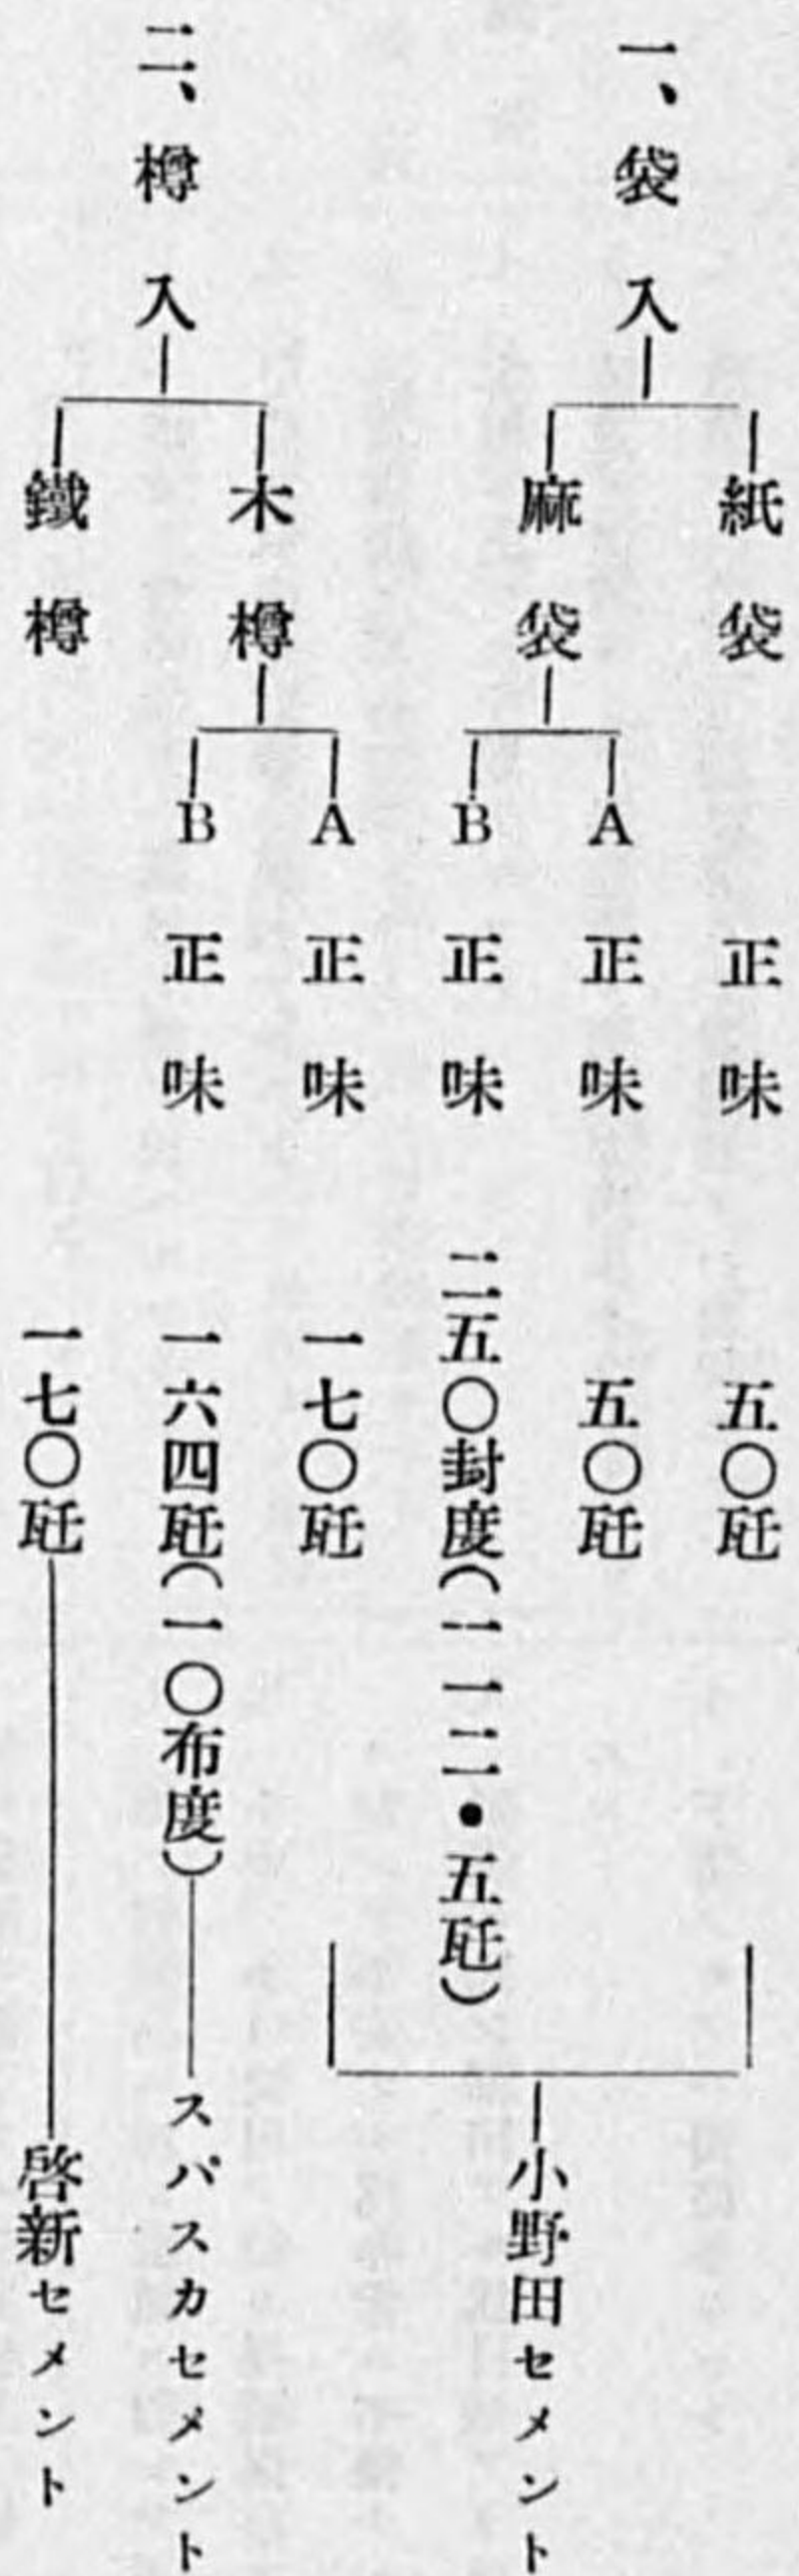 一、袋入
紙袋 正味 五〇瓩
麻袋
A 正味 五〇瓩
B 正味 二五〇封度(一一二・五瓩)
二、樽入
木樽
A 正味 一七〇瓩
小野田セメント
B 正味 一六四瓩(一〇布度)スパスカセメント
鐵樽 一七〇瓩 啓新セメント